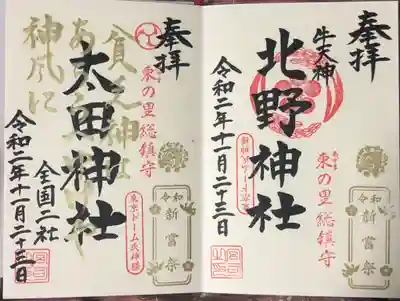 奉拝
牛天神
北野神社
東の里総鎮守
令和二年十一月二十三日
令和
新嘗祭
奉拝
東の里総鎮守
太田神社
貧乏神は
神風に
全国二社
令和二年十一月二十三日
東京ドーム氏神様
令和
新嘗祭